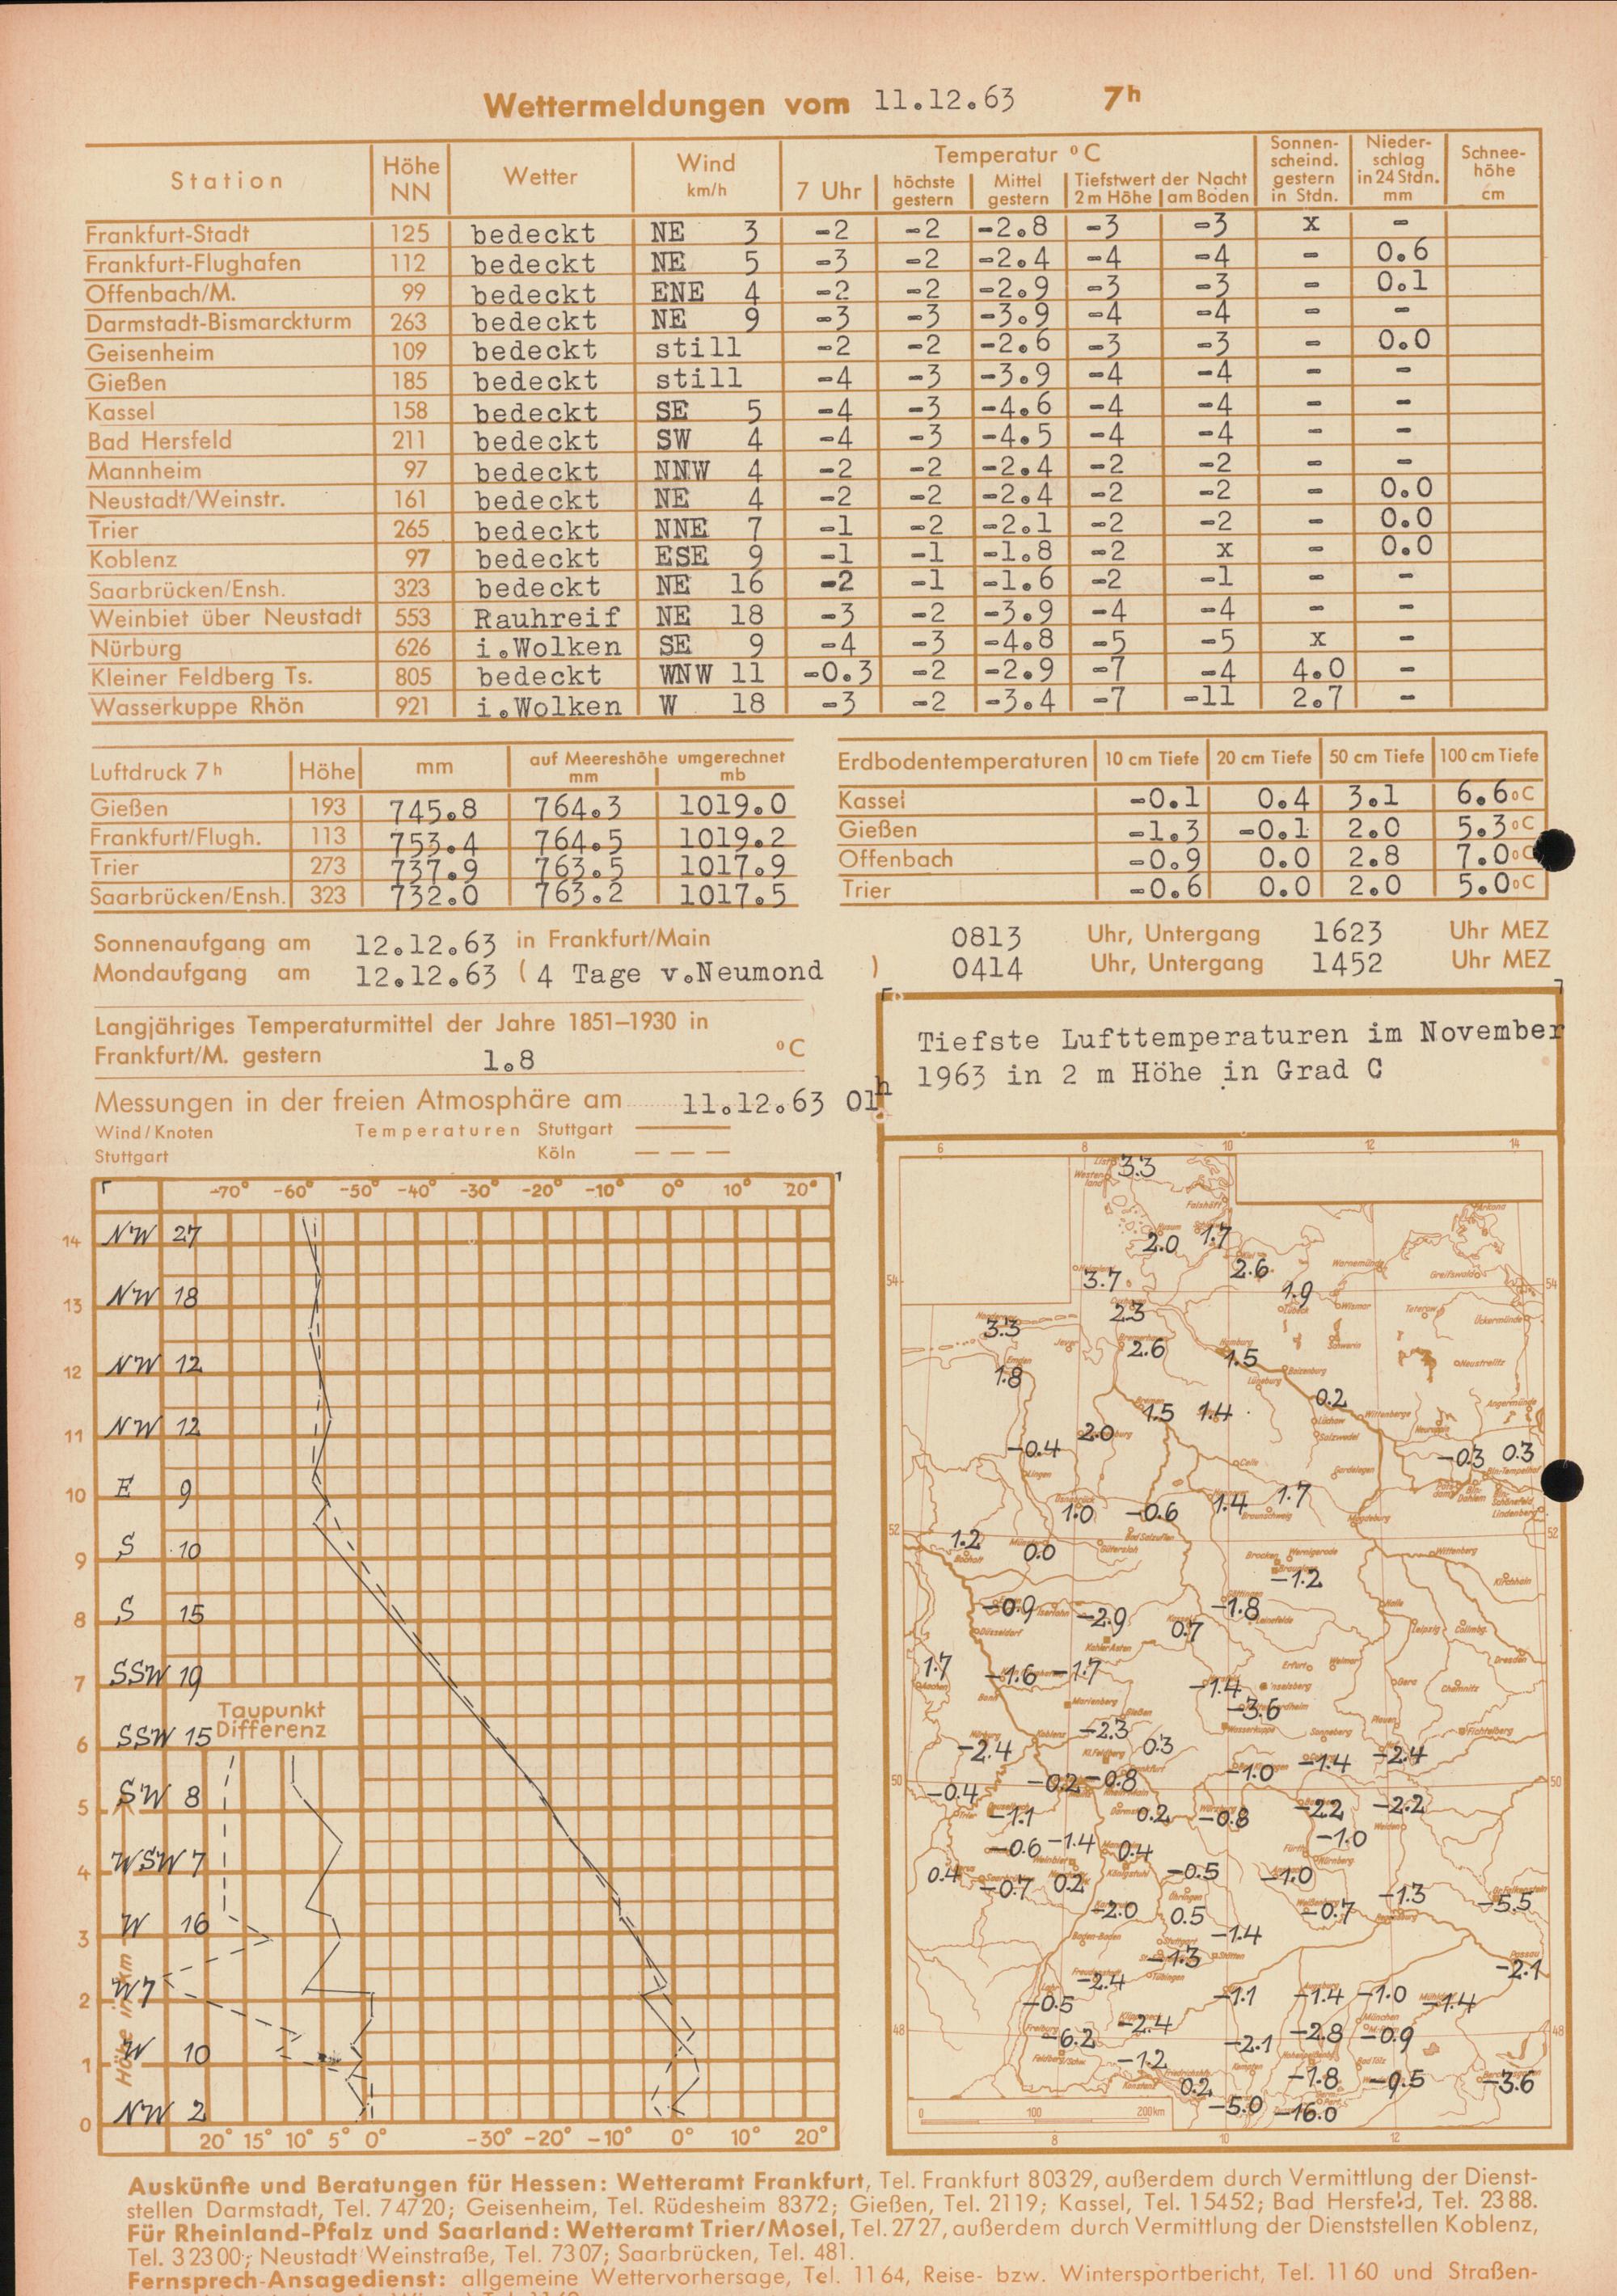 Wettermeldungen vom 11.12.63 7h
Station Höhe NN Wetter Wind km/h Temperatur °C Sonnenscheind. gestern in Stdn. Niederschlag in 24 Stdn. mm Schneehöhe cm
7 Uhr höchste gestern Mittel gestern Tiefstwert der Nacht 2 m Höhe am Boden
Frankfurt-Stadt 125 bedeckt NE 3 -2 -2 -2.8 -3 -3 x -
Frankfurt-Flughafen 112 bedeckt NE 5 -3 -2 -2.4 -4 -4 - 0.6
Offenbach/M. 99 bedeckt ENE 4 -2 -2 -2.9 -3 -3 - 0.1
Darmstadt-Bismarckturm 263 bedeckt NE 9 -3 -3 -3.9 -4 -4 - -
Geisenheim 109 bedeckt still -2 -2 -2.6 -3 -3 - 0.0
Gießen 185 bedeckt still -4 -3 -3.9 -4 -4 - -
Kassel 158 bedeckt SE 5 -4 -3 -4.6 -4 -4 - -
Bad Hersfeld 211 bedeckt SW 4 -4 -3 -4.5 -4 -4 - -
Mannheim 97 bedeckt NNW 4 -2 -2 -2.4 -2 -2 - -
Neustadt/Weinstr. 161 bedeckt NE 4 -2 -2 -2.4 -2 -2 - 0.0
Trier 265 bedeckt NNE 7 -1 -2 -2.1 -2 -2 - 0.0
Koblenz 97 bedeckt ESE 9 -1 -1 -1.8 -2 x - 0.0
Saarbrücken/Ensh. 323 bedeckt NE 16 -2 -1 -1.6 -2 -1 - -
Weinbiet über Neustadt 553 Rauhreif NE 18 -3 -2 -3.9 -4 -4 - -
Nürburg 626 i.Wolken SE 9 -4 -3 -4.8 -5 -5 x -
Kleiner Feldberg Ts. 805 bedeckt WNW 11 -0.3 -2 -2.9 -7 -4 4.0 -
Wasserkuppe Rhön 921 i.Wolken W 18 -3 -2 -3.4 -7 -11 2.7 -
Luftdruck 7h Höhe mm auf Meereshöhe umgerechnet mm mb
Gießen 193 745.8 764.3 1019.0
Frankfurt/Flugh. 113 753.4 764.5 1019.2
Trier 273 737.9 763.5 1017.9
Saarbrücken/Ensh. 323 732.0 763.2 1017.5
Erdbodentemperaturen 10 cm Tiefe 20 cm Tiefe 50 cm Tiefe 100 cm Tiefe
Kassel -0.1 0.4 3.1 6.6°C
Gießen -1.3 -0.1 2.0 5.3°C
Offenbach -0.9 0.0 2.8 7.0°C
Trier -0.6 0.0 2.0 5.0°C
Sonnenaufgang am 12.12.63 in Frankfurt/Main 0813 Uhr, Untergang 1623 Uhr MEZ
Mondaufgang am 12.12.63 (4 Tage v.Neumond ) 0414 Uhr, Untergang 1452 Uhr MEZ
Langjähriges Temperaturmittel der Jahre 1851–1930 in
Frankfurt/M. gestern 1.8 °C
Messungen in der freien Atmosphäre am 11.12.63 01h
Wind/Knoten Temperaturen Stuttgart
Stuttgart Köln
-70° -60° -50° -40° -30° -20° -10° 0° 10° 20°
14 NW 27
13 NW 18
12 NW 12
11 NW 12
10 E 9
9 S 10
8 S 15
7 SSW 19
Taupunkt
Differenz
6 SSW 15
5 SW 8
4 WSW 7
3 W 16
2 W 7
1 W 10
0 NW 2
Höhe in km
20° 15° 10° 5° 0° -30° -20° -10° 0° 10° 20°
Tiefste Lufttemperaturen im November
1963 in 2 m Höhe in Grad C
6 8 10 12 14
3.3
2.0 1.7
3.7 2.6
54 1.9 54
2.3
3.3
2.6 1.5
1.8
0.2
1.5 1.4
2.0
-0.4 -0.3 0.3
1.0 -0.6 1.4 1.7
52 1.2 0.0 52
-1.2
-0.9 -2.9 -1.8
0.7
1.7 -1.6 -1.7
-1.4
-3.6
-2.3
-2.4 0.3
-1.0 -1.4 -2.4
50 -0.4 -0.2 -0.8 50
-1.1 0.2 -0.8 -2.2 -2.2
-0.6 -1.4 0.4 -1.0
0.4 -0.7 0.2 -0.5 -1.0
-2.0 0.5 -0.7 -1.3 -5.5
-1.4
-1.3 -2.1
-2.4
-0.5 -1.1 -1.4 -1.0 -1.4
48 -6.2 -2.4 -2.1 -2.8 -0.9 48
-1.2
0.2 -1.8 -0.5 -3.6
-5.0 -16.0
0 100 200 km
8 10 12
Auskünfte und Beratungen für Hessen: Wetteramt Frankfurt, Tel. Frankfurt 80329, außerdem durch Vermittlung der Dienst-
stellen Darmstadt, Tel. 74720; Geisenheim, Tel. Rüdesheim 8372; Gießen, Tel. 2119; Kassel, Tel. 15452; Bad Hersfeld, Tel. 2388.
Für Rheinland-Pfalz und Saarland: Wetteramt Trier/Mosel, Tel. 2727, außerdem durch Vermittlung der Dienststellen Koblenz,
Tel. 32300; Neustadt Weinstraße, Tel. 7307; Saarbrücken, Tel. 481.
Fernsprech-Ansagedienst: allgemeine Wettervorhersage, Tel. 1164, Reise- bzw. Wintersportbericht, Tel. 1160 und Straßen-